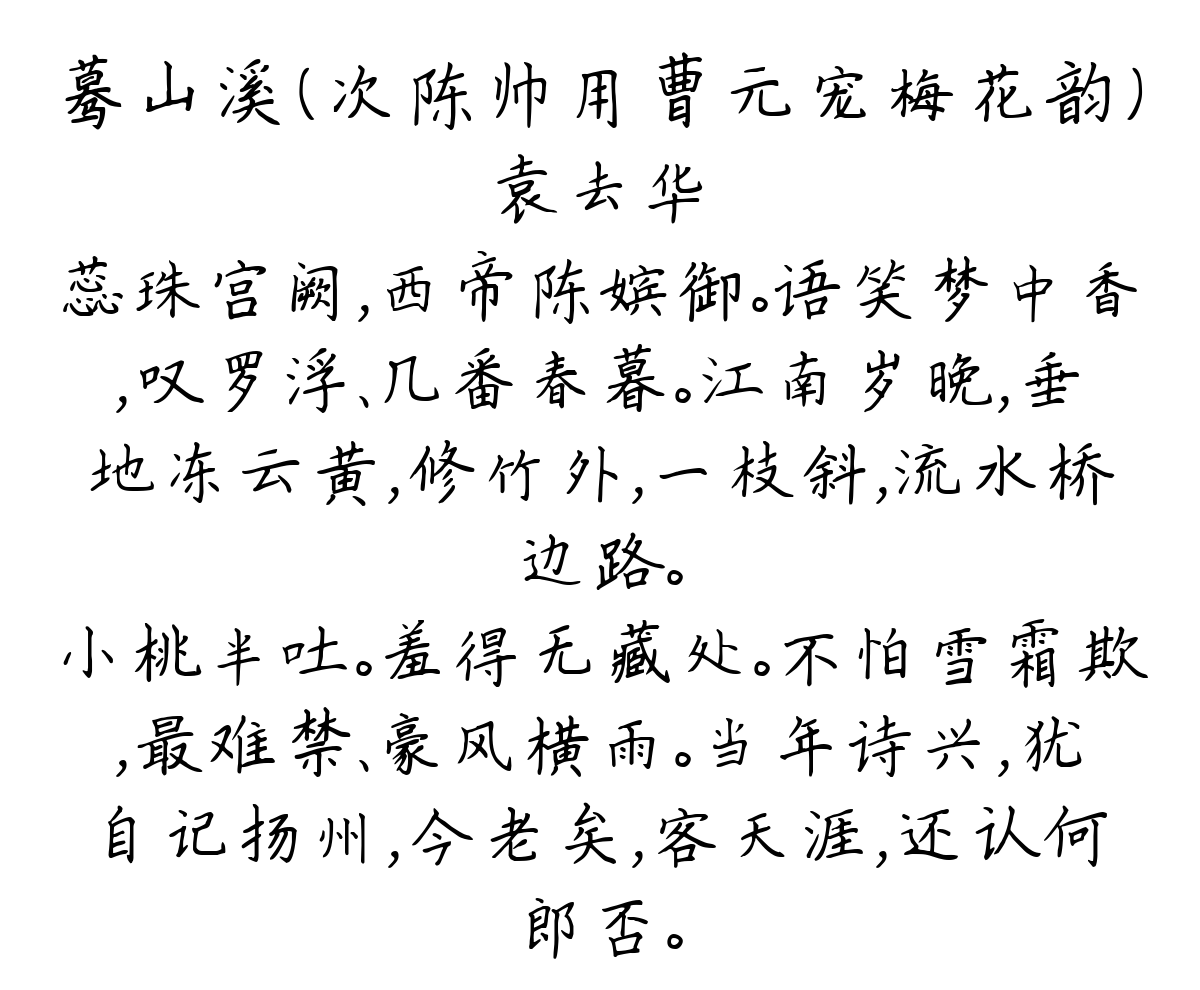 蓦山溪(次陈帅用曹元宠梅花韵)
袁去华
蕊珠宫阙,西帝陈嫔御。语笑梦中香
,叹罗浮、几番春暮。江南岁晚,垂
地冻云黄,修竹外,一枝斜,流水桥
边路。
小桃半吐。羞得无藏处。不怕雪霜欺
,最难禁、豪风横雨。当年诗兴,犹
自记扬州,今老矣,客天涯,还认何
郎否。